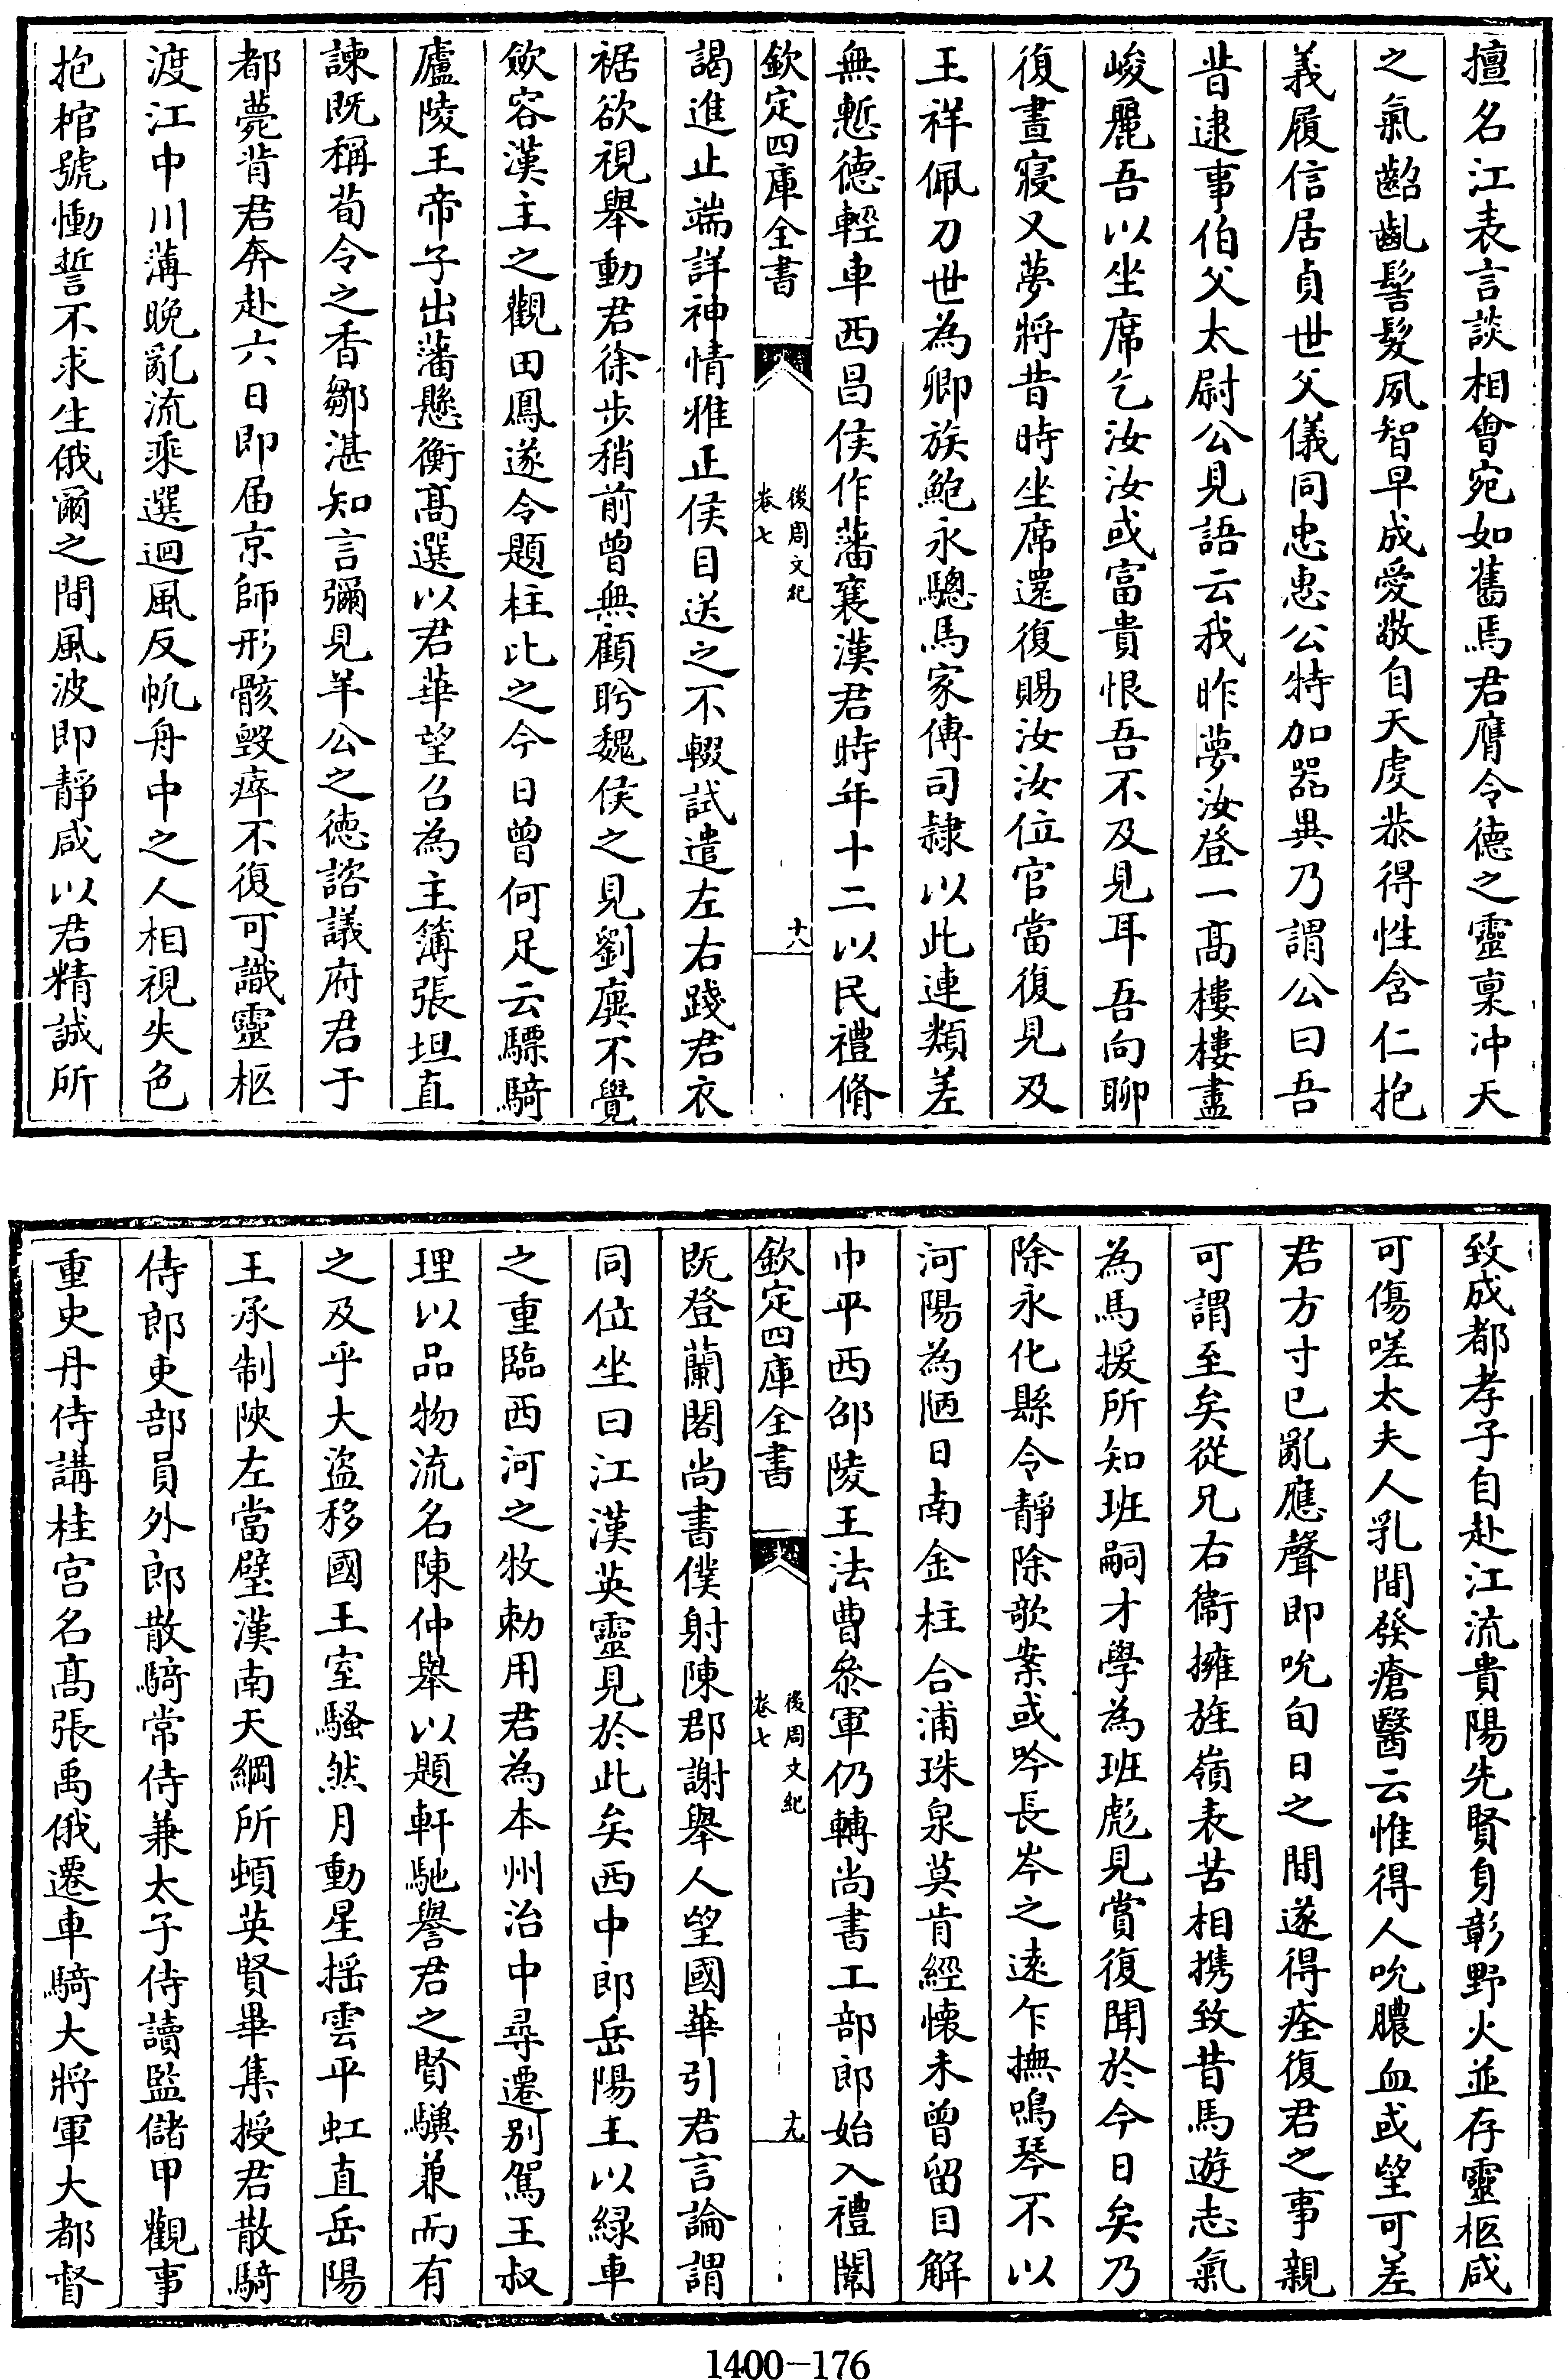 擅名江表言談相會宛如舊焉君膺令德之靈稟冲天
之氣齠齓髫髮夙智早成愛敬自天虔恭得性含仁抱
義履信居貞世父儀同忠惠公特加器異乃謂公曰吾
昔逮事伯父太尉公見語云我昨夢汝登一髙樓樓盡
峻麗吾以坐席乞汝汝或富貴恨吾不及見耳吾向聊
復晝寢又夢將昔時坐席還復賜汝汝位官當復見及
王祥佩刀世為卿族鮑永驄馬家傳司隸以此連類差
無慙德輕車西昌侯作藩襄漢君時年十二以民禮脩
欽定四庫全書
後周文紀
卷七
十八
謁進止端詳神情雅正侯目送之不輟試遣左右踐君衣
裾欲視舉動君徐步稍前曾無顧盻魏侯之見劉廙不覺
斂容漢主之觀田鳳遂令題柱比之今日曾何足云驃騎
廬陵王帝子出藩懸衡髙選以君華望召為主簿張坦直
諫既稱荀令之香鄒湛知言彌見羊公之徳諮議府君于
都薨背君奔赴六日即届京師形骸毀瘁不復可識靈柩
渡江中川薄晚亂流乘選迴風反帆舟中之人相視失色
抱棺號慟誓不求生俄爾之間風波即靜咸以君精誠所
致成都孝子自赴江流貴陽先賢身彰野火並存靈柩咸
可傷嗟太夫人乳間發瘡醫云惟得人吮膿血或望可差
君方寸已亂應聲即吮旬日之間遂得痊復君之事親
可謂至矣從兄右衞擁旌嶺表苦相携致昔馬遊志氣
為馬援所知班嗣才學為班彪見賞復聞於今日矣乃
除永化縣令靜除欹案或吟長岑之遠乍撫鳴琴不以
河陽為陋日南金柱合浦珠泉莫肯經懷未曾留目解
巾平西邵陵王法曹參軍仍轉尚書工部郎始入禮闈
欽定四庫全書
後周文紀
卷七
十九
既登蘭閣尚書僕射陳郡謝舉人望國華引君言論謂
同位坐曰江漢英靈見於此矣西中郎岳陽王以緑車
之重臨西河之牧勅用君為本州治中尋遷别駕王叔
理以品物流名陳仲舉以題軒馳譽君之賢驥兼而有
之及乎大盜移國王室騷然月動星揺雲平虹直岳陽
王承制陜左當璧漢南天綱所頓英賢畢集授君散騎
侍郎吏部員外郎散騎常侍兼太子侍讀監儲甲觀事
重史丹侍講桂宫名髙張禹俄遷車騎大將軍大都督
1400-176